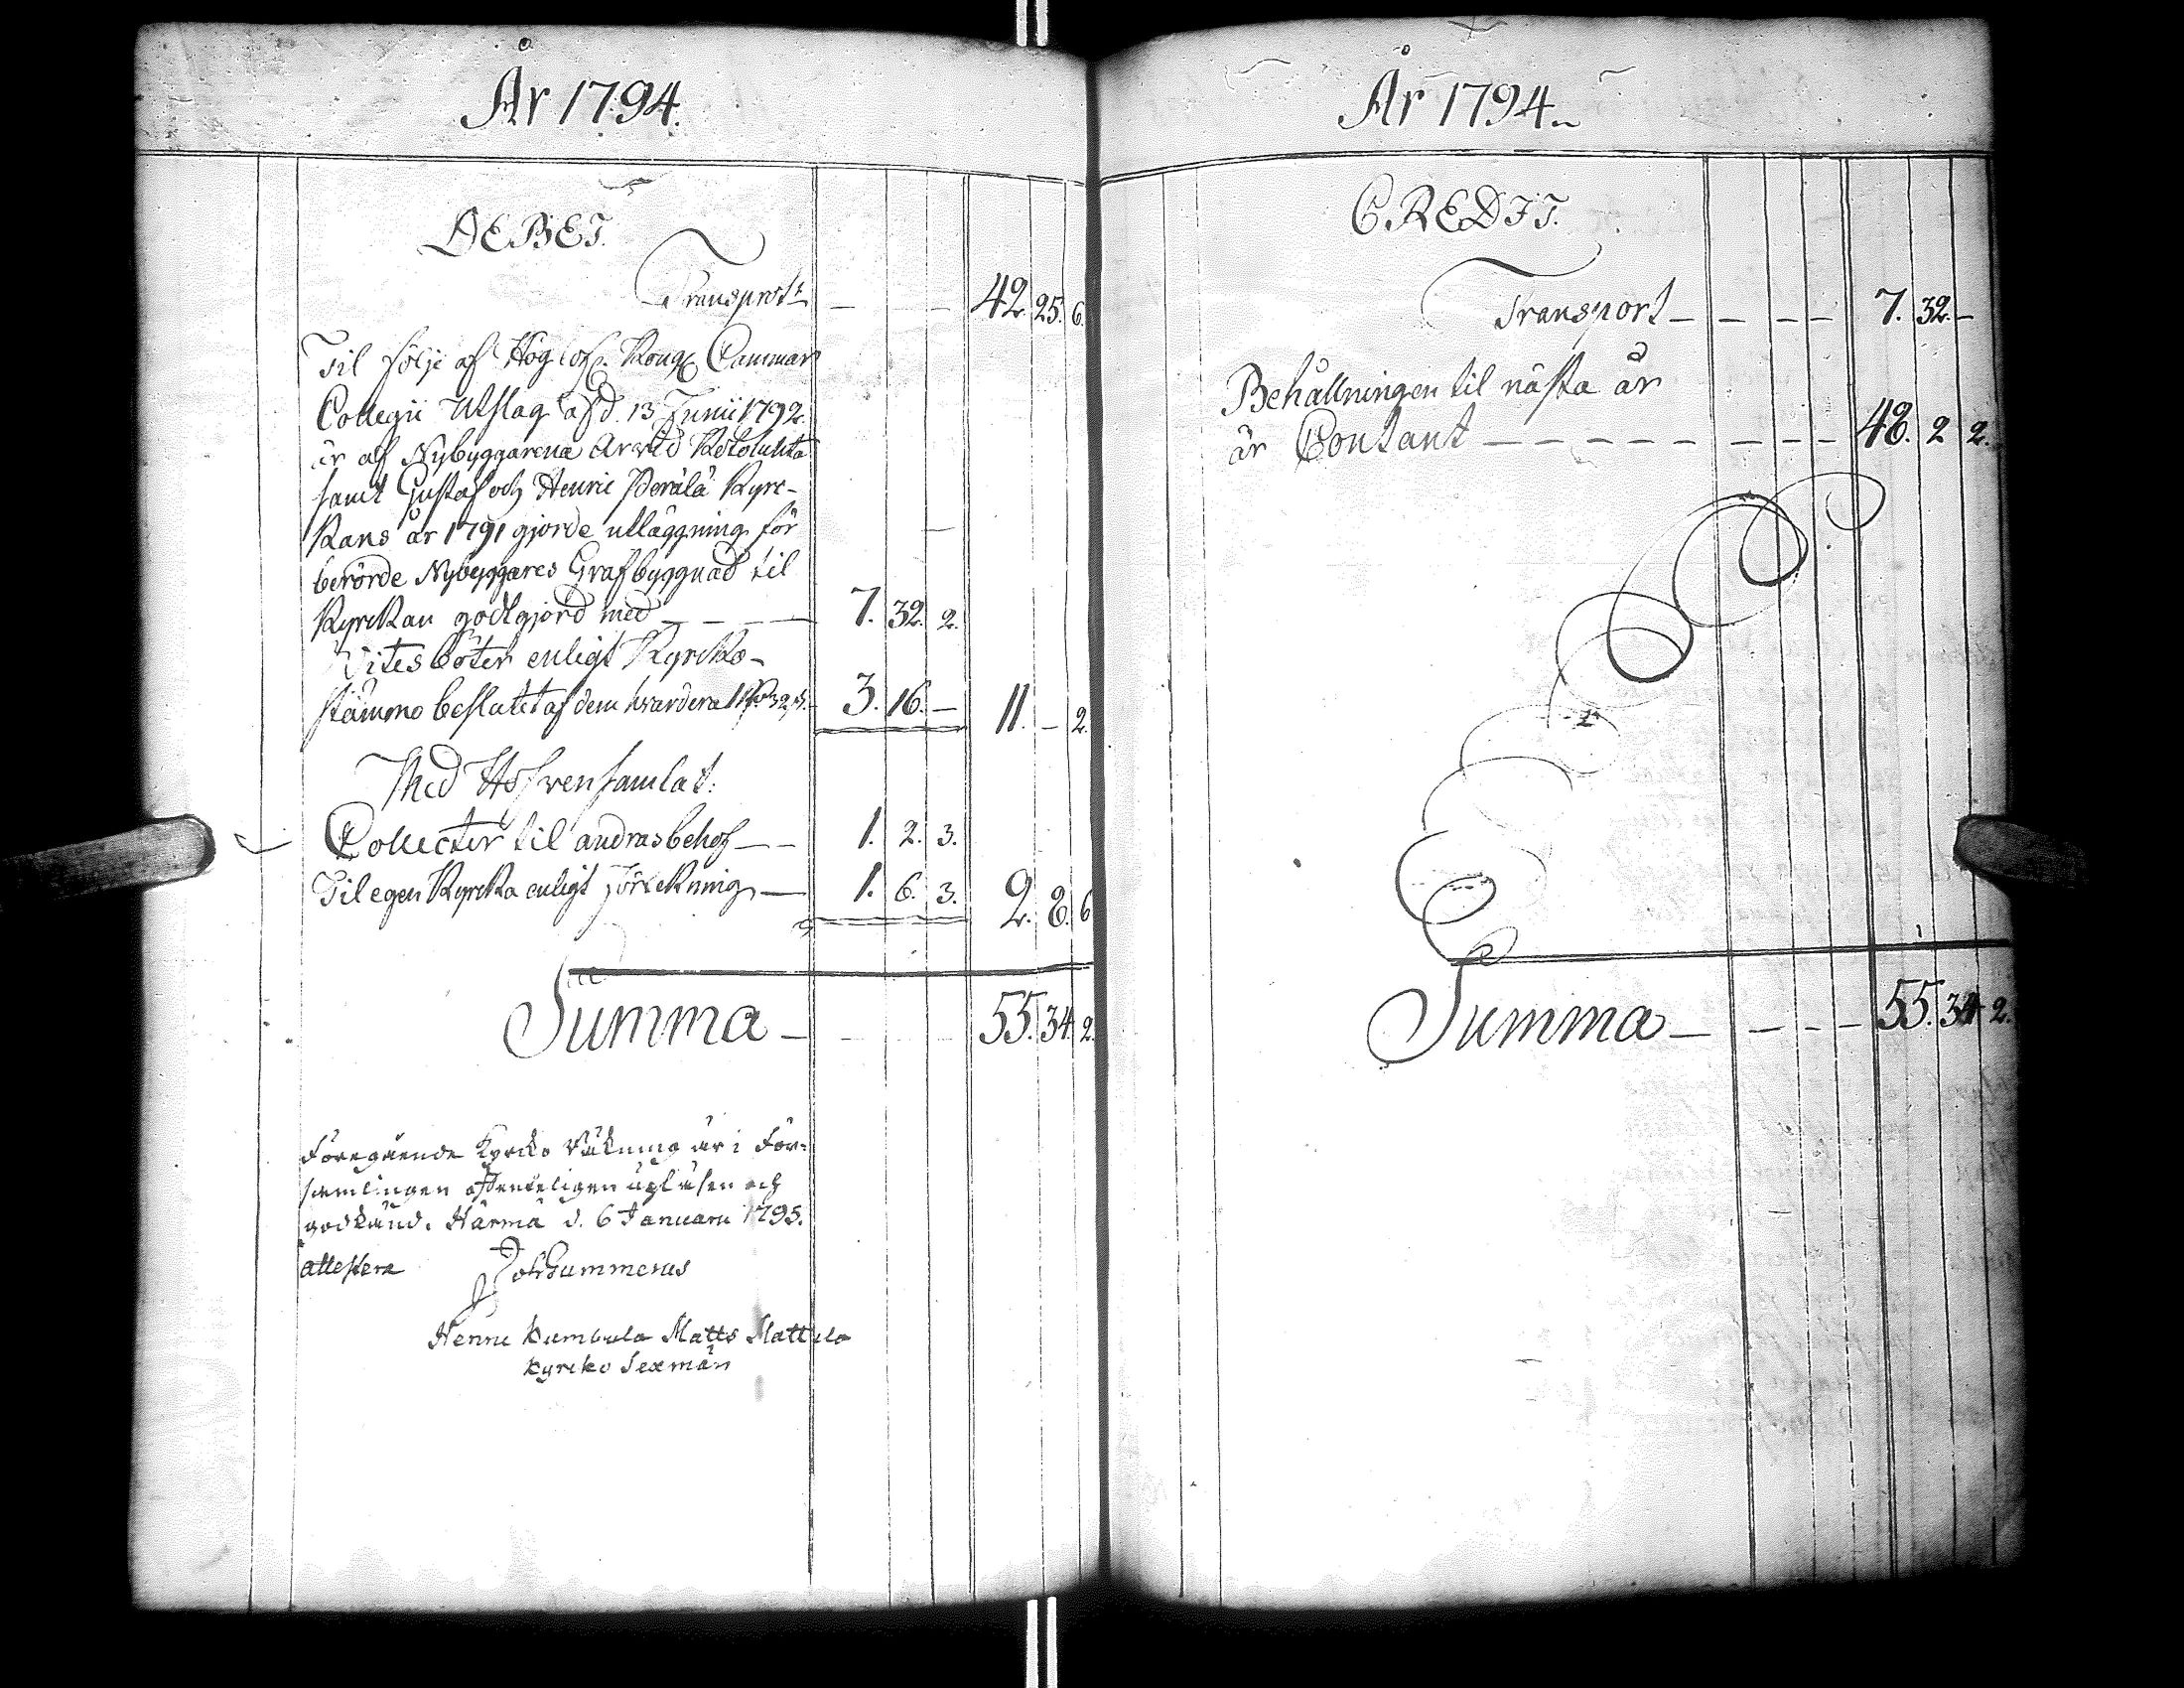 År 1794.
DEBET.
Transport – – – 42. 25. 6.
Til följe af Höglofl. Kongl. Cammar
Collegii Utslag af d. 13 Junii 1792.
är af Nybyggarena Arvid
samt Gustaf och Henric Perälä Kyrc-
kans år 1791 gjorde utläggning för
berörde Nybyggares Grafbyggnad til
Kyrckan godtgjord med – – – 7. 32. 2.
Vites böter enligt Kyrcko-
stämmo beslutet af dem hvardera 3. 16. – 11. – 2.
Med Håfven samlat:
Collecter til andras behof – – 1. 2. 3.
Til egen Kyrcka enligt förtekning – 1. 6. 3. 2. 8. 6
Summa – – – 55. 34. 2.
Föregående Kyrcko Räkning är i För-
samlingen offenteligen upläsen och
godkänd. Härmä d. 6 Januarii 1795.
attestera Joh Gummerus
Henric Kumbula Matts Mattila
Kyrcko Sexmän
År 1794.
CREDIT.
Transport – – – – 7. 32. –
Behållningen til nästa år
är Contant – – – – – – – – 48. 2 2.
Summa – – – – 55. 34 2.